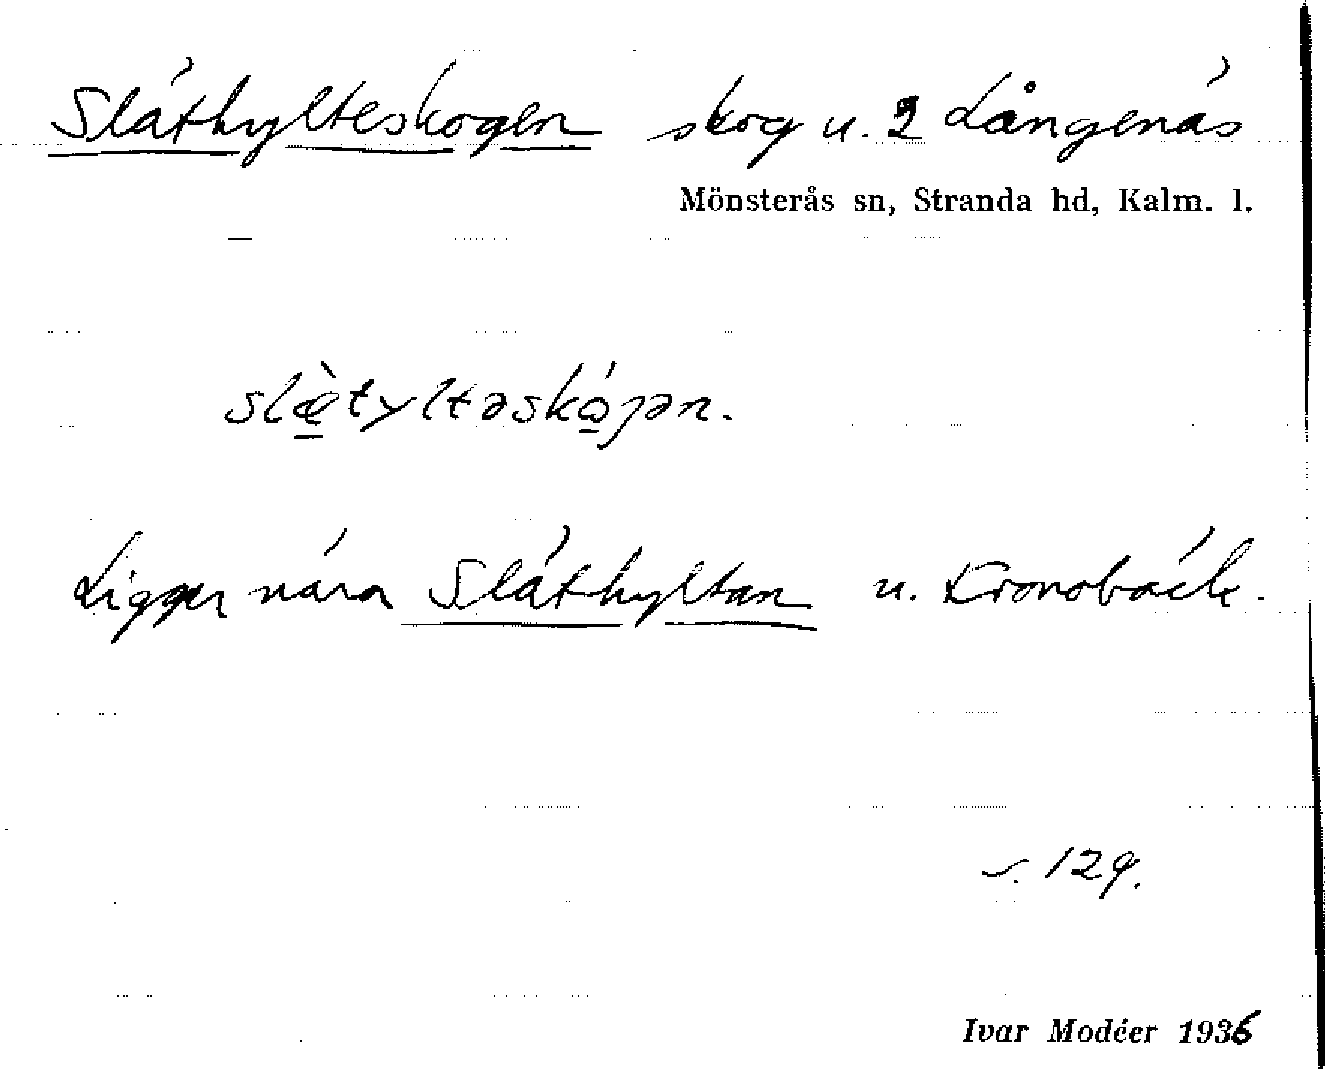 Släthylteskogen skog u. 2 Långenäs
Mönsterås sn, Stranda hd, Kalm. l.
slæ̀tyltəskó̠jən.
Ligger nära Släthyltan u. Kronobäck.
s. 129.
Ivar Modéer 1936